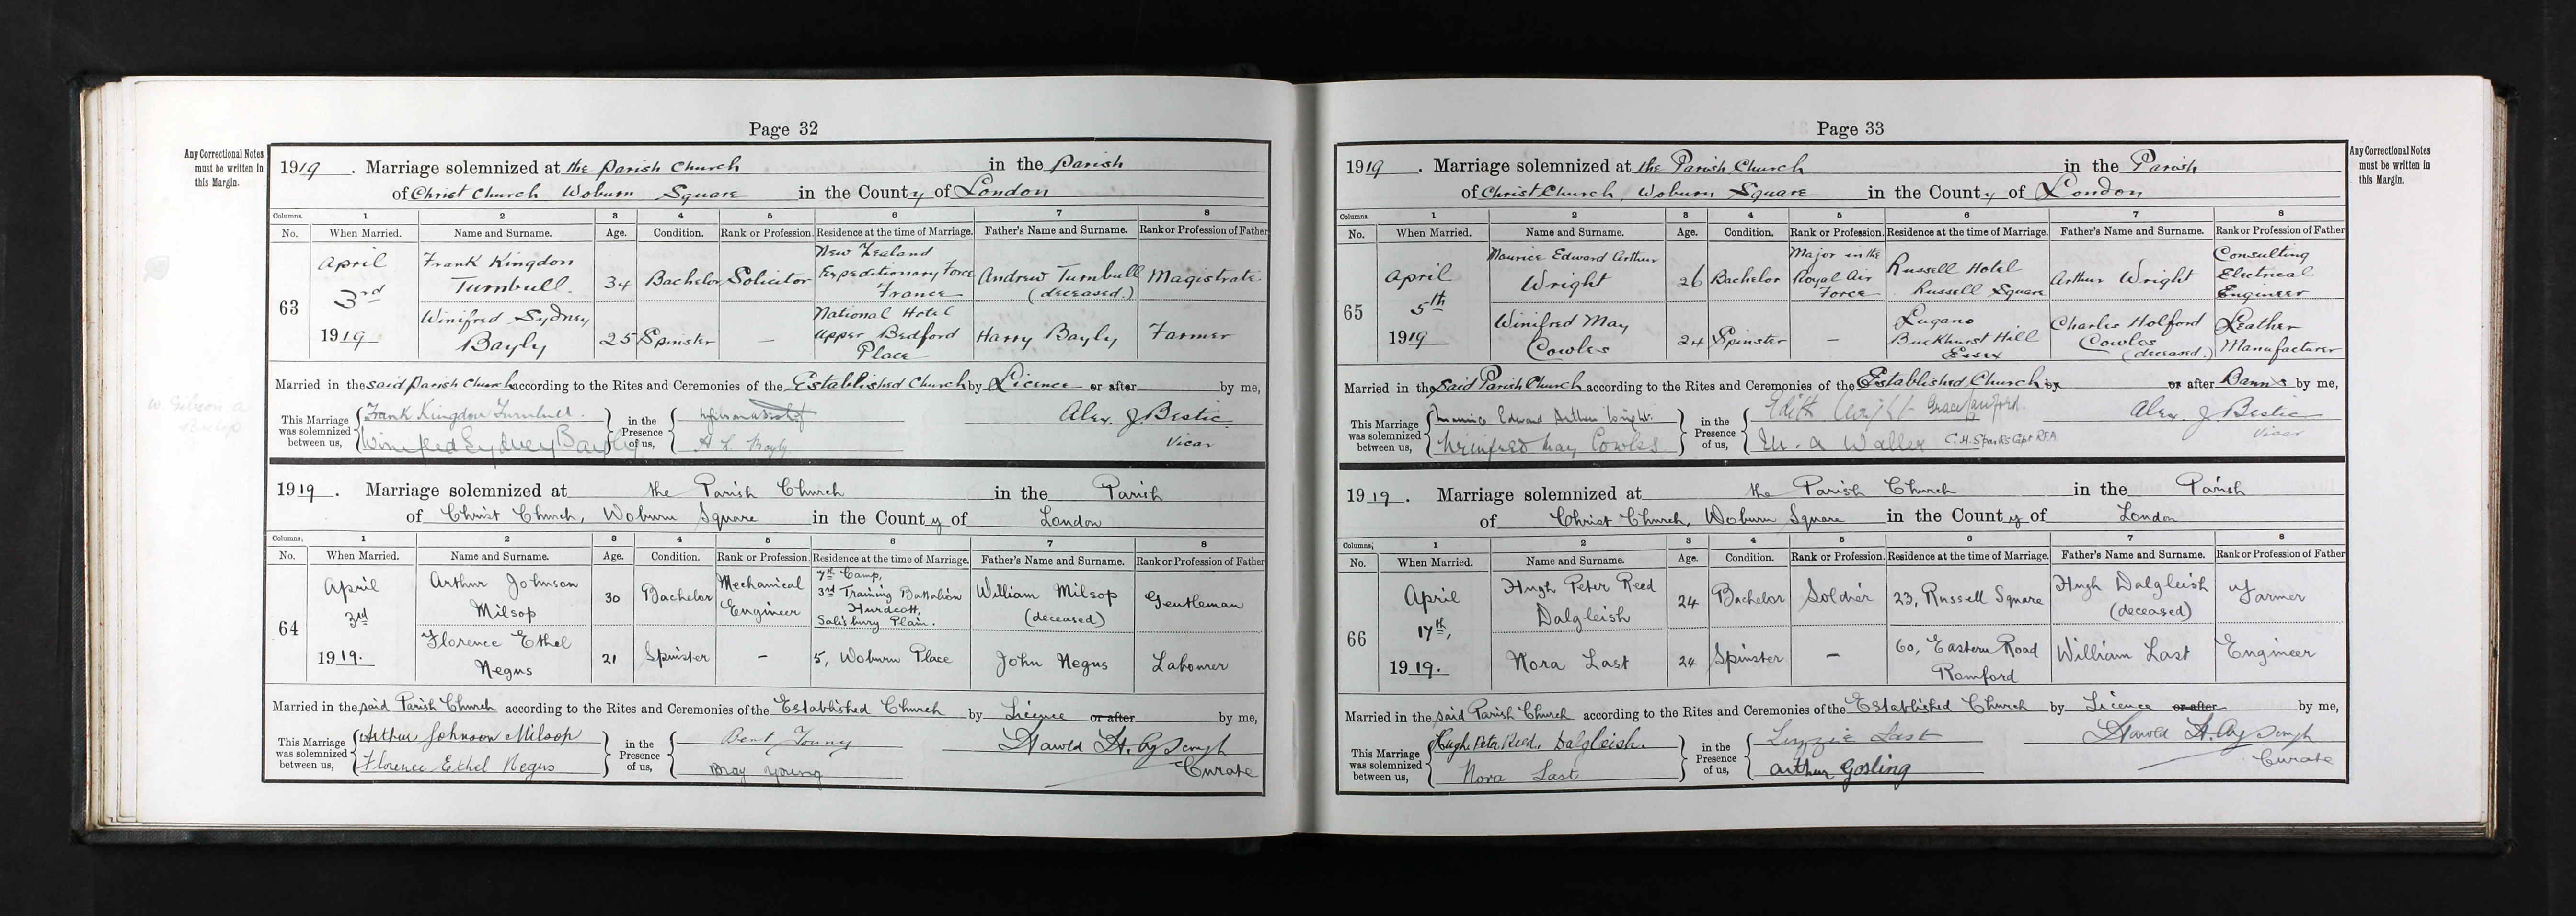 Page 32
Any Correctional Notes
must be written in
this Margin.
1919. Marriage solemnized at the Parish Church in the Parish
of Christ Church Woburn Square in the County of London
Columns. 1 2 3 4 5 6 7 8
No. When Married. Name and Surname. Age. Condition. Rank or Profession. Residence at the time of Marriage. Father's Name and Surname. Rank or Profession of Father
63 April 3rd 1919
Frank Kingdon Turnbull. 34 Bachelor Solicitor New Zealand Expeditionary Force France Andrew Turnbull (deceased.) Magistrate
Winifred Sydney Bayly 25 Spinster — National Hotel Upper Bedford Place Harry Bayly Farmer
Married in the said Parish Church according to the Rites and Ceremonies of the Established Church by Licence or after by me,
This Marriage was solemnized between us, Frank Kingdon Turnbull. Winifred Sydney Bayly in the Presence of us, H L Bayly Alex. J Bestic Vicar
1919. Marriage solemnized at the Parish Church in the Parish
of Christ Church, Woburn Square in the County of London
Columns, 1 2 3 4 5 6 7 8
No. When Married. Name and Surname. Age. Condition. Rank or Profession. Residence at the time of Marriage. Father's Name and Surname. Rank or Profession of Father
64 April 3rd 1919.
Arthur Johnson Milsop 30 Bachelor Mechanical Engineer 7th Camp, 3rd Training Battalion Hurdcott, Salisbury Plain. William Milsop (deceased) Gentleman
Florence Ethel Negus 21 Spinster — 5, Woburn Place John Negus Labourer
Married in the said Parish Church according to the Rites and Ceremonies of the Established Church by Licence or after by me,
This Marriage was solemnized between us, Arthur Johnson Milsop Florence Ethel Negus in the Presence of us, Young May Young Harold H. Curate
Page 33
Any Correctional Notes
must be written in
this Margin.
1919. Marriage solemnized at the Parish Church in the Parish
of Christ Church, Woburn Square in the County of London
Columns. 1 2 3 4 5 6 7 8
No. When Married. Name and Surname. Age. Condition. Rank or Profession. Residence at the time of Marriage. Father's Name and Surname. Rank or Profession of Father
65 April 5th 1919
Maurice Edward Arthur Wright 26 Bachelor Major in the Royal Air Force Russell Hotel Russell Square Arthur Wright Consulting Electrical Engineer
Winifred May Cowles 24 Spinster — Lugano Buckhurst Hill Essex Charles Holford Cowles (deceased.) Leather Manufacturer
Married in the said Parish Church according to the Rites and Ceremonies of the Established Church by or after Banns by me,
This Marriage was solemnized between us, Maurice Edward Arthur Wright. Winifred May Cowles in the Presence of us, Edith Wright Grace M. A Waller C.H. Sparks Capt RFA Alex. J Bestic Vicar
1919. Marriage solemnized at the Parish Church in the Parish
of Christ Church, Woburn Square in the County of London
Columns; 1 2 3 4 5 6 7 8
No. When Married. Name and Surname. Age. Condition. Rank or Profession. Residence at the time of Marriage. Father's Name and Surname. Rank or Profession of Father
66 April 17th, 1919.
Hugh Peter Reed Dalgleish 24 Bachelor Soldier 23, Russell Square Hugh Dalgleish (deceased) Farmer
Nora Last 24 Spinster — 60, Eastern Road Romford William Last Engineer
Married in the said Parish Church according to the Rites and Ceremonies of the Established Church by Licence or after by me,
This Marriage was solemnized between us, Hugh Peter Reed. Dalgleish. Nora Last in the Presence of us, Lizzie Last Arthur Gosling Harold H. Curate